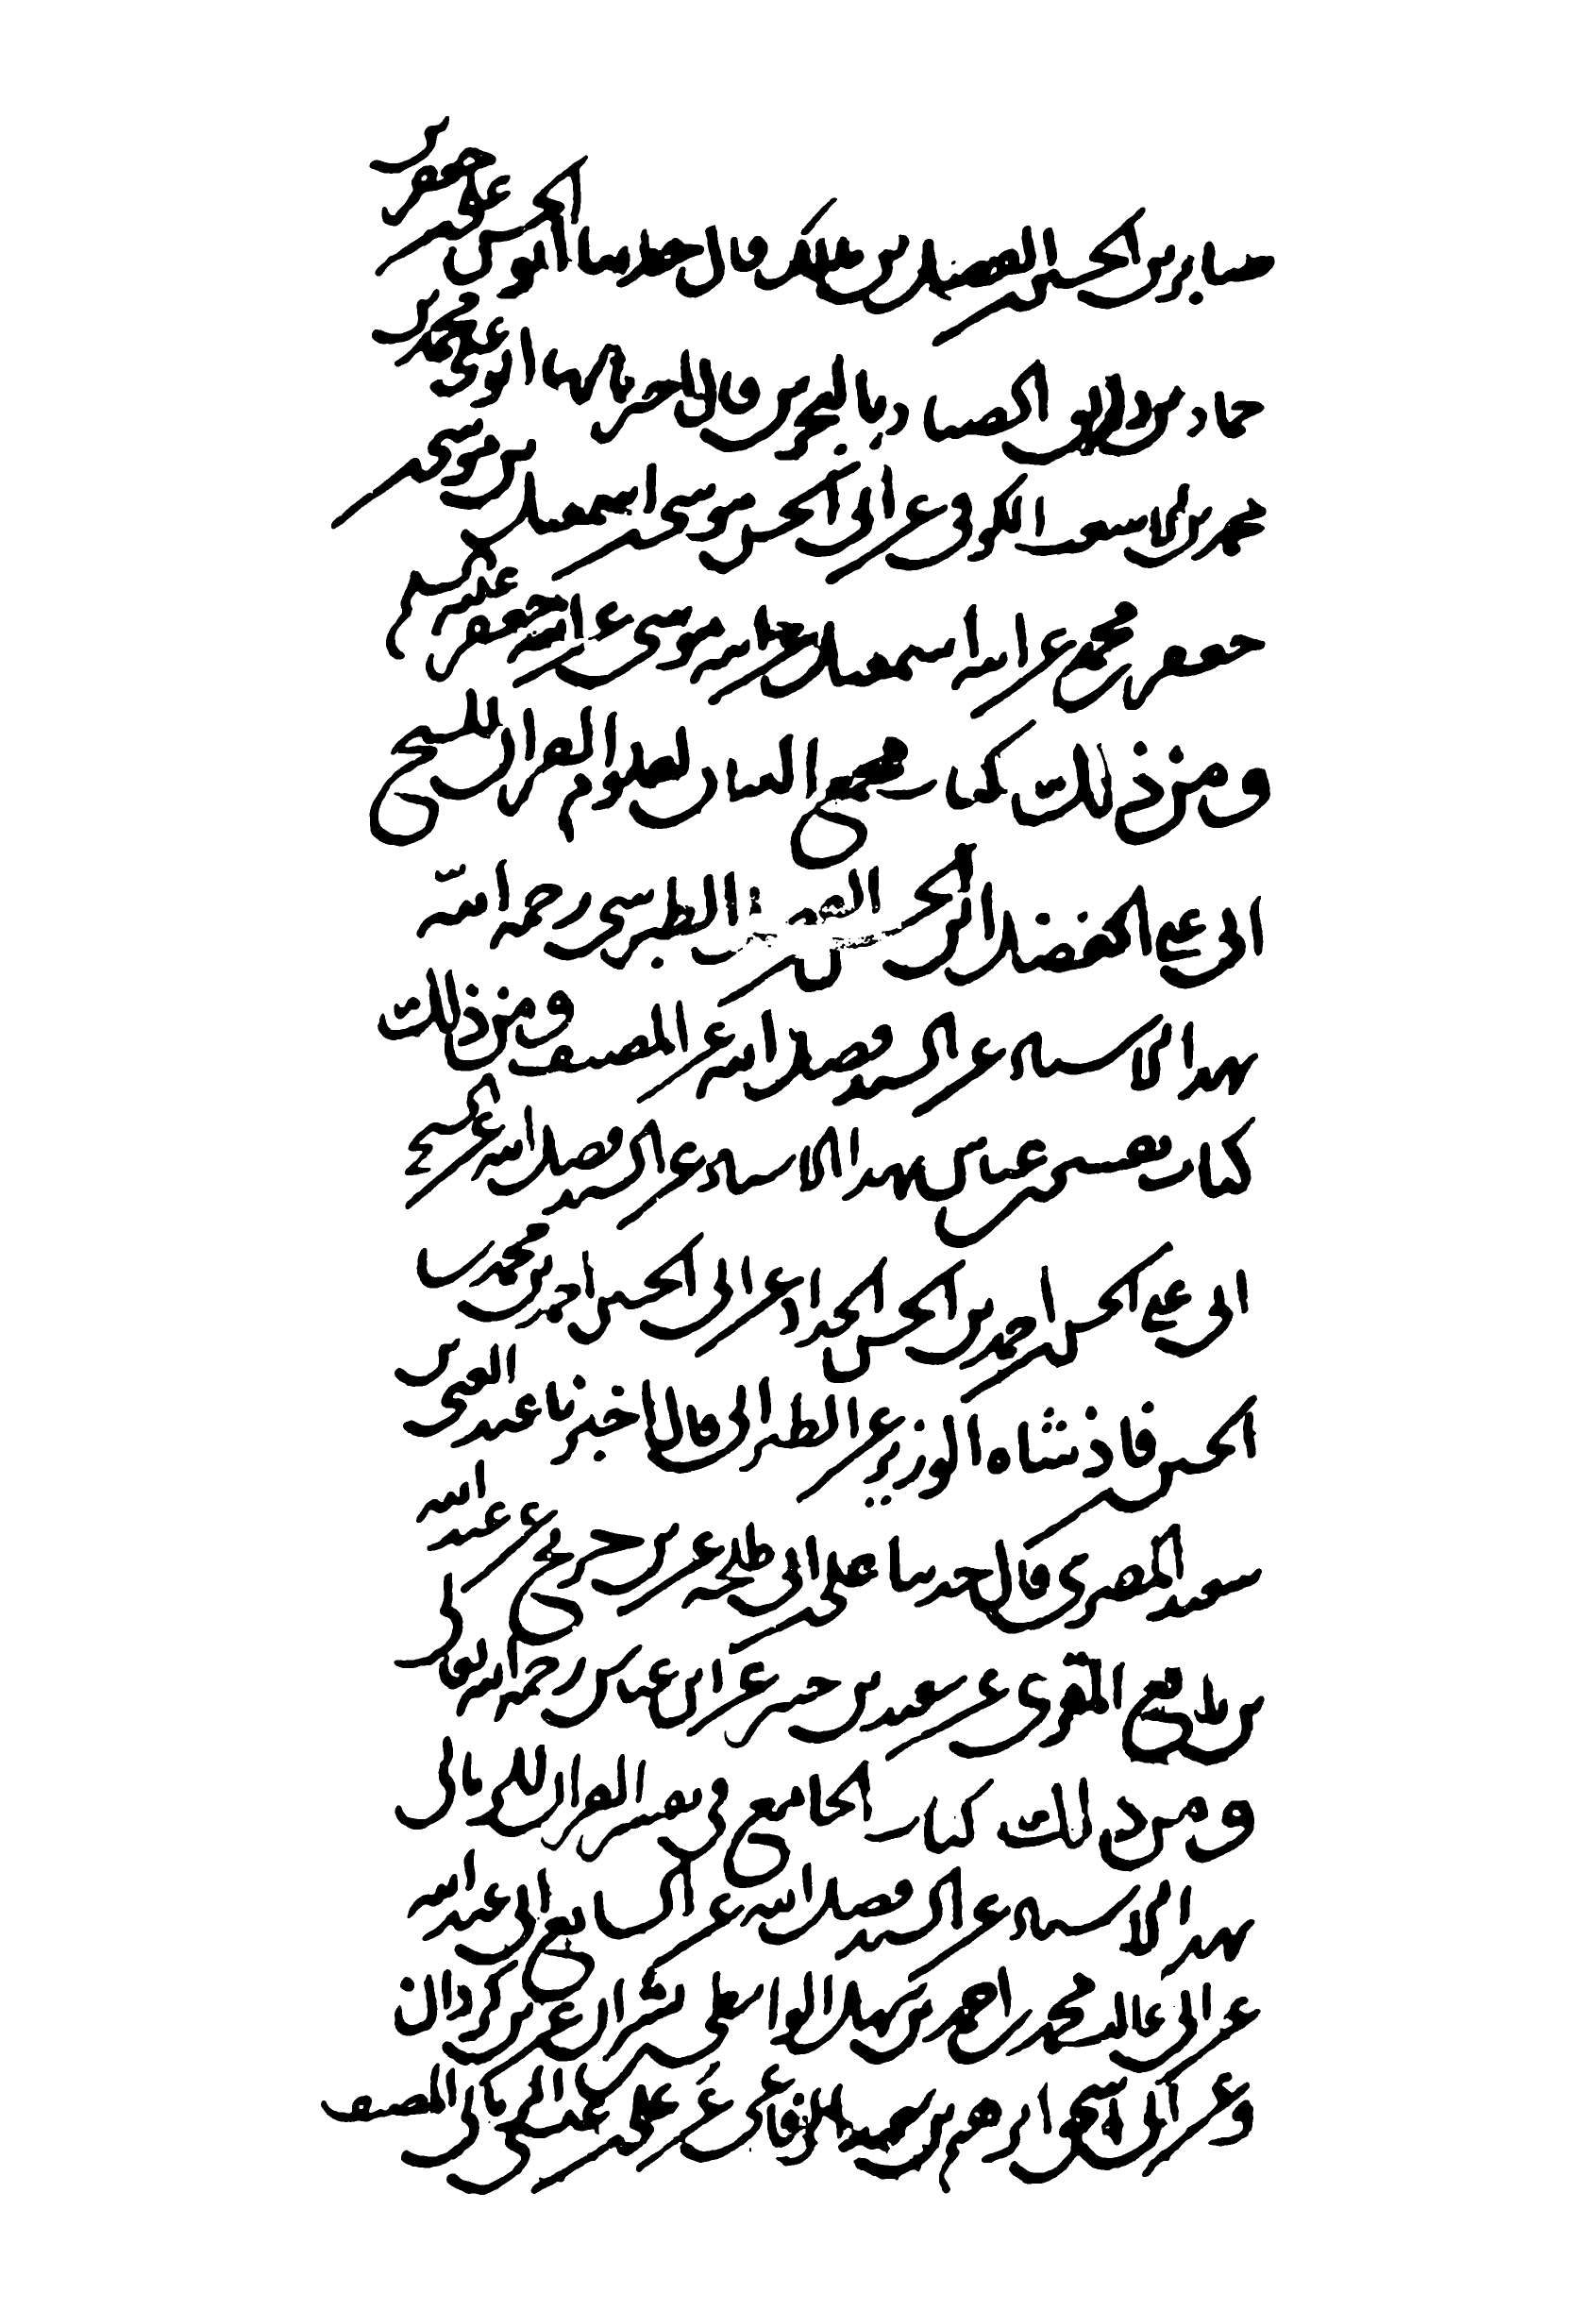 ساير بن الحسين الفضل بن مالك قال حدثنا ابو الحسن علي بن جعفر بن
حماد بن الصياد بالبحرين قال اخبرنا بها ابو علي محمد بن
محمد بن الاشعث الكوفي عن ابي الحسن موسى بن اسمعيل بن موسى بن
جعفر بن محمد عن ابيه اسمعيل عن ابيه موسى عن ابيه جعفر عليهم السلم
ومن ذلك كتاب مجمع البيان لعلوم القران للشيخ
ابي علي الفضل بن الحسن الطبرسي رحمه الله
بهذا الاسناد عن السيد فضل الله عن المصنف ومن ذلك
كتاب تفسير ابن عباس بهذا الاسناد عن السيد فضل الله عن الشيخ
ابي علي الحسن بن احمد بن الحسن الحداد عن ابي الحسين احمد بن محمد بن
الحسين فاذشاه الوزير عن الطبراني قال اخبرنا عبد الغني بن
سعيد المصري قال حدثنا علي بن ابي طلحة عن بن جريج عن عبد الله
المقرى عن سعيد بن جبير عن ابن عباس رحمه الله تعالى
ومن ذلك كتاب الجامع في تفسير القران للرماني
بهذا الاسناد عن السيد فضل الله عن ابي عبد الله
عن ابي غالب محمد بن احمد بن سهل الواسطي بشران عن بن كردان
وعن ابي اسحق ابرهيم بن سعيد الرفاعي عن علي بن عيسى الرماني المصنف